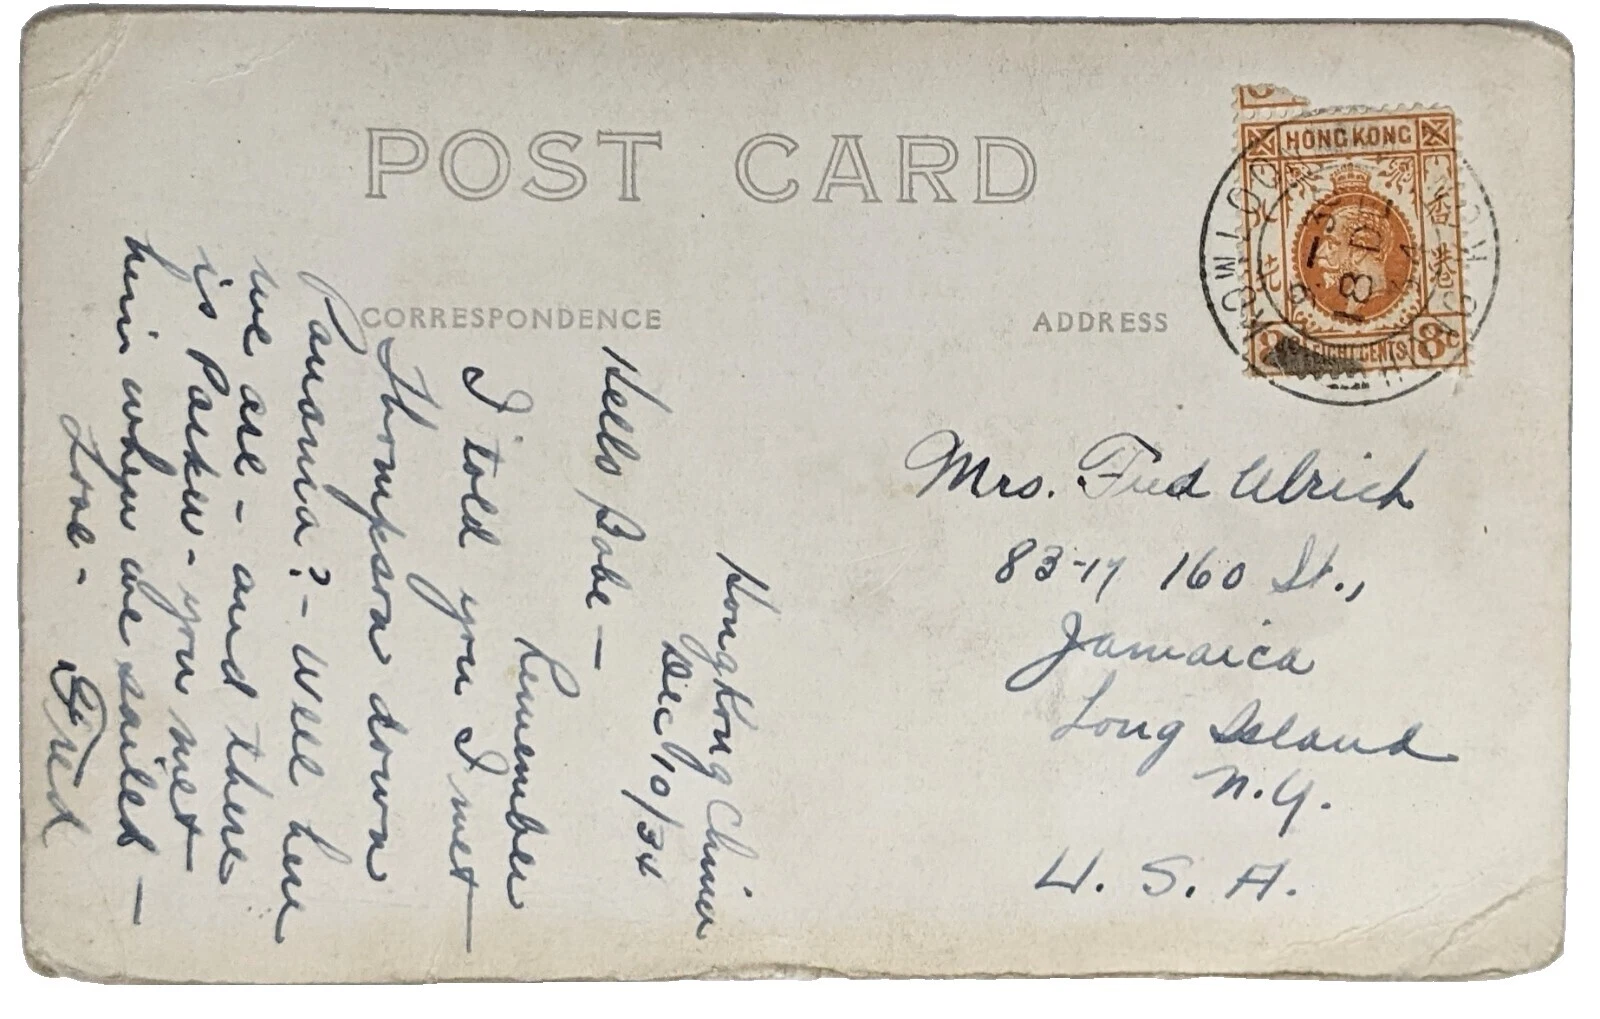 POST CARD
CORRESPONDENCE
ADDRESS
HONG KONG
香港
EIGHT CENTS
8c
KOWLOON
HONG
18 D
Hongkong China
Dec 10/34
Hello Babe —
Remember
I told you I met
Thompson down
Panama? – Well here
we are – and there
is Parker – you met
him when we sailed —
Love –
Fred
Mrs. Fred Ulrich
83-17 160 St.,
Jamaica
Long Island
N.Y.
U. S. A.